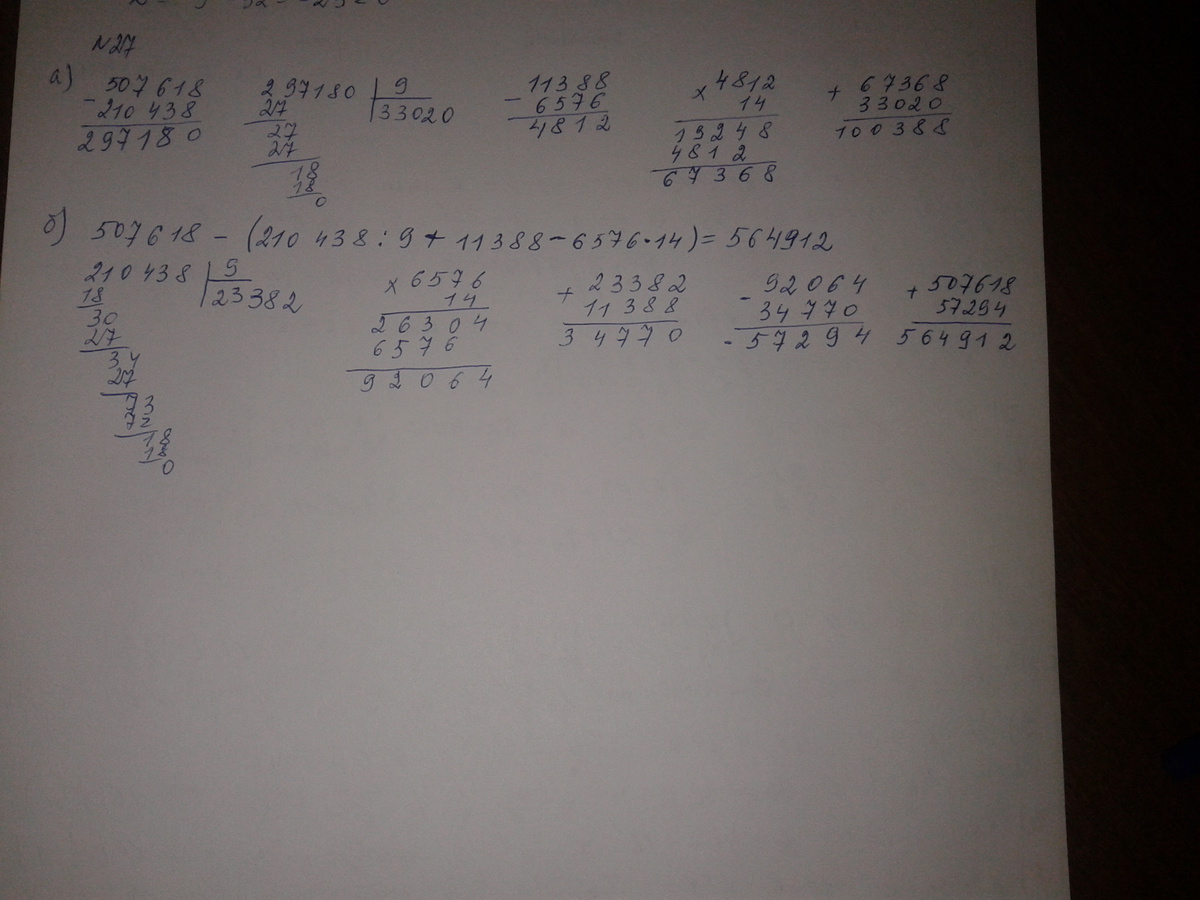 N27
а) 507618 297180 | 9 11388 4812 67368
- 210438 27 33020 - 6576 x 14 + 33020
297180 27 4812 19248 100388
27 4812
18 67368
18
0
б) 507618 - (210 438 : 9 + 11388 - 6576 · 14) = 564912
210438 | 9 x 6576 + 23382 - 92064 + 507618
18 23382 14 11388 34770 57294
30 26304 34770 - 57294 564912
27 6576
34 92064
27
73
72
18
18
0